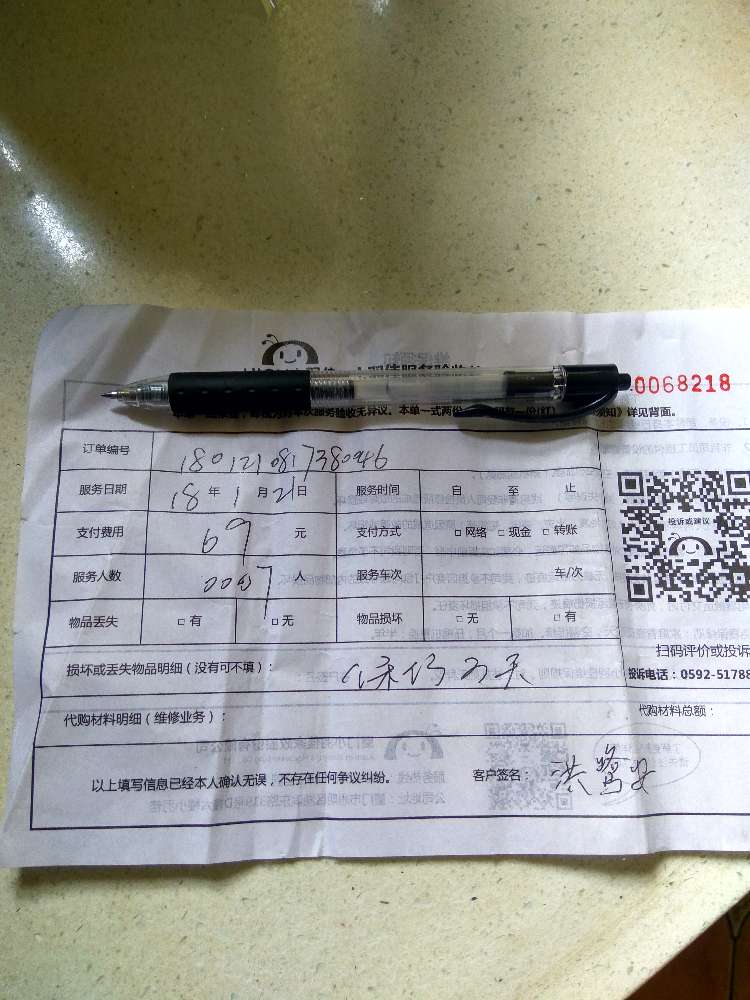 0068218
本单一式两份
须知》详见背面。
订单编号 180121081738046
服务日期 18 年 1 月 21 日 服务时间 自 至 止
支付费用 69 元 支付方式 □ 网络 □ 现金 □ 转账
服务人数 0007 人 服务车次 车/次
物品丢失 □ 有 □ 无 物品损坏 □ 无 □ 有
投诉或建议
扫码评价或投诉
投诉电话：0592-51788
损坏或丢失物品明细（没有可不填）：
代购材料明细（维修业务）： 代购材料总额：
以上填写信息已经本人确认无误，不存在任何争议纠纷。 客户签名：